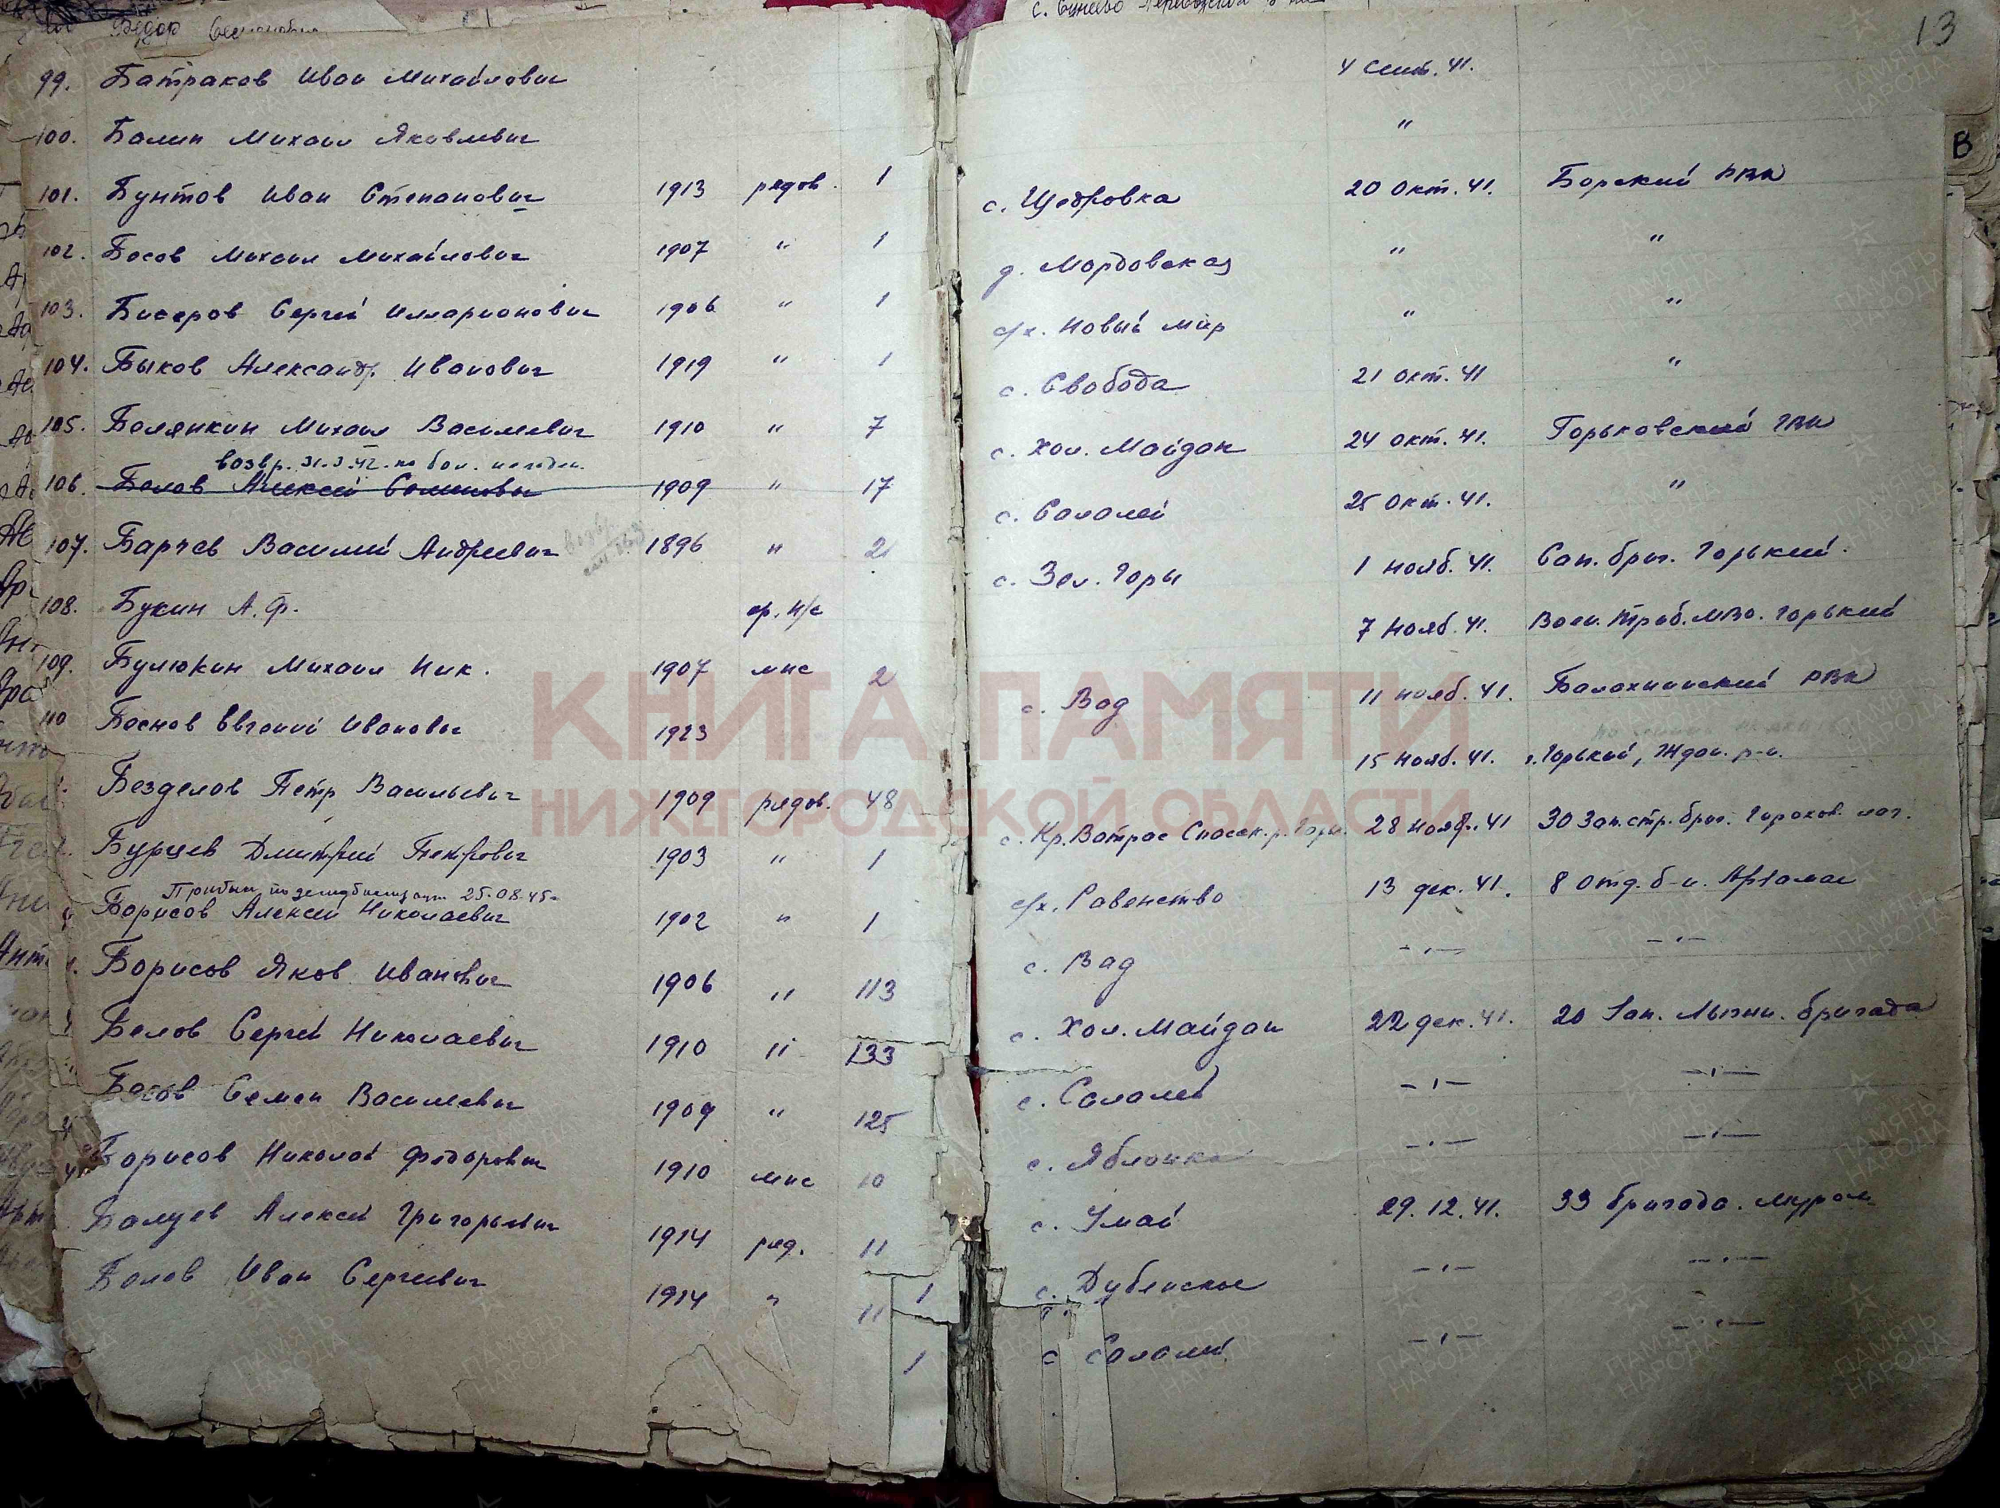 с. Сунеево Перевозский р-на
13
Федор Семенович
99. Батраков Иван Михайлович 4 Сент. 41.
100. Балин Михаил Яковлевич "
101. Бунтов Иван Степанович 1913 рядов. 1 с. Щедровка 20 Окт. 41. Борский РВК
102. Босов Михаил Михайлович 1907 " 1 д. Мордовская " "
103. Бисеров Сергей Илларионович 1906 " 1 с/х. Новый мир " "
104. Быков Александр Иванович 1919 " 1 с. Свобода 21 Окт. 41 "
105. Белянкин Михаил Васильевич 1910 " 7 с. Хол. Майдан 24 Окт. 41. Горьковский ГВК
возвр. 31.3.42. по бол.
106. Белов Алексей 1909 " 17 с. Салалей 25 Окт. 41. "
107. Барчев Василий Андреевич возвр. 1896 " 2 с. Зел. Горы 1 Нояб. 41. Сап. бриг. Горький.
108. Букин А. Ф. ср. н/с 7 Нояб. 41. Воен. Триб. МВО. Горький
109. Булюкин Михаил Ник. 1907 мнс 2 с. Вад 11 Нояб. 41. Балахнинский РВК
110 Беснов Евгений Иванович 1923 15 Нояб. 41. г. Горький, Ждан. р-н.
Безделов Петр Васильевич 1909 рядов. 48 с. Кр. Ватрас Спасск. р. Горьк. 28 Нояб. 41 30 Зап. стр. бриг. Горохов. лаг.
Бурцев Дмитрий Петрович 1903 " 1 с/х. Равенство 13 дек. 41. 8 Отд. б-н. Арзамас
Прибыл по демобилизации 25.08.45г
Борисов Алексей Николаевич 1902 " 1 с. Вад -"- -"-
Борисов Яков Иванович 1906 " 113 с. Хол. Майдан 22 дек. 41. 20 Зап. Лыжн. бригада
Белов Сергей Николаевич 1910 " 133 с. Салалей -"- -"-
Босов Семен Васильевич 1909 " 125 с. Яблонка -"- -"-
Борисов Николай Федорович 1910 мнс 10 с. Умай 29.12.41. 33 бригада. Муром
Балуев Алексей Григорьевич 1914 ряд. 11 1 с. Дубенское -"- -"-
Белов Иван Сергеевич 1914 " 11 1 с Салалей -"- -"-
В
КНИГА ПАМЯТИ
НИЖЕГОРОДСКОЙ ОБЛАСТИ
ПАМЯТЬ НАРОДА